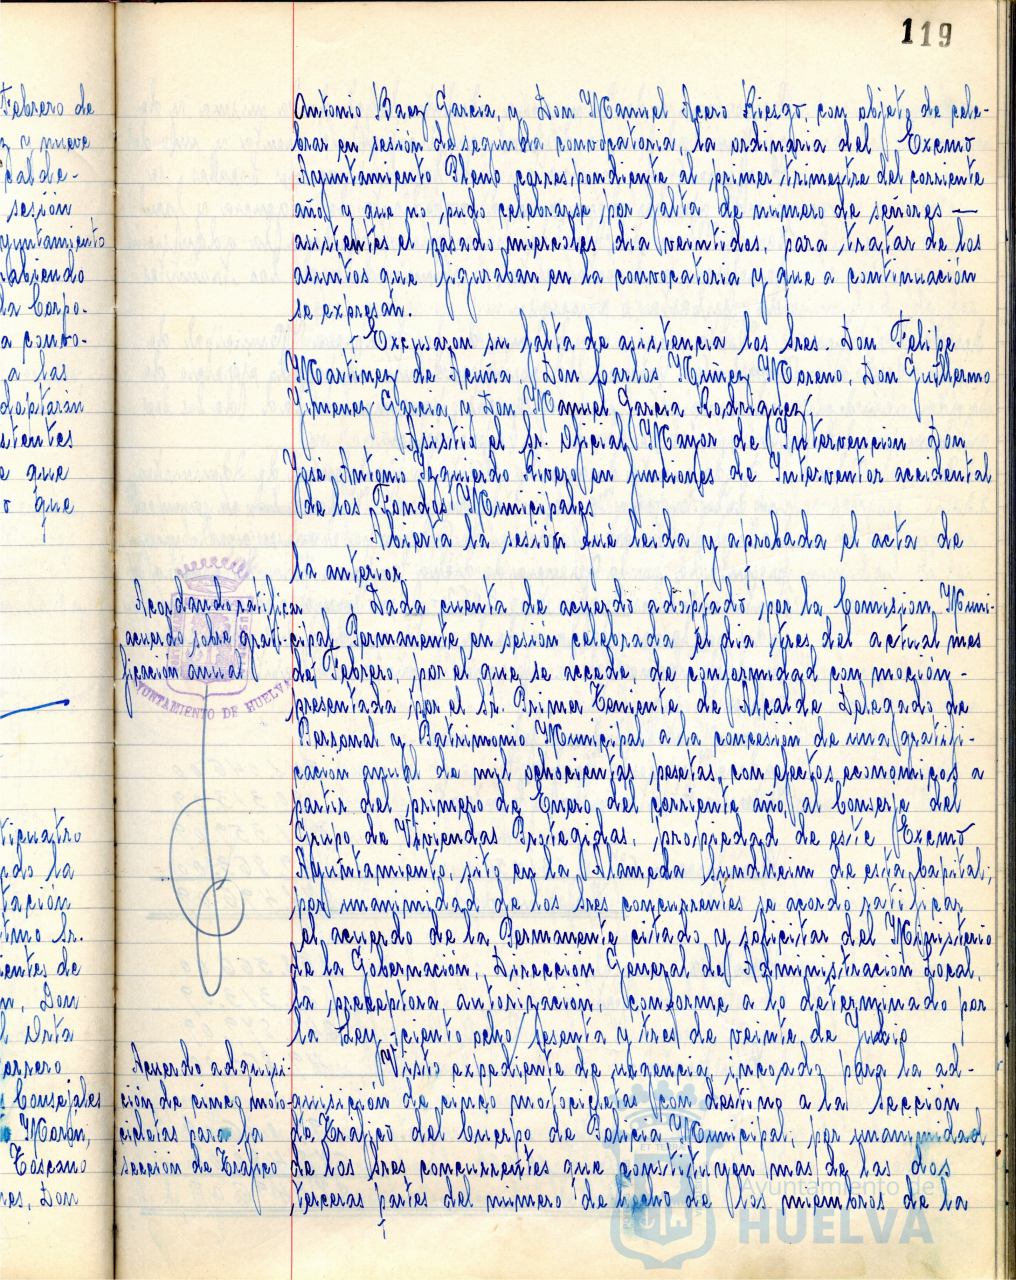 119
Febrero de
z y nueve
cal de-
sesión
yuntamiento
rabiendo
la Corpo-
a convo-
a las
doptaron
stentes
e que
o que
ticuatro
ndo la
tación
tmo Sr.
ientes de
n, Don
l Orta
errero
s Consejales
o Morón,
Toscano
nes, Don
Antonio Baez Garcia, y Don Manuel Acero Riesgo, con objeto de cele-
brar en sesión de segunda convocatoria, la ordinaria del Excmo
Ayuntamiento Pleno correspondiente al primer trimestre del corriente
año, y que no pudo celebrarse por falta de numero de señores —
asistentes el pasado miercoles dia veintidos, para tratar de los
asuntos que figuraban en la convocatoria y que a continuación
se expresan.
Excusaron su falta de asistencia los Sres. Don Felipe
Martinez de Acuña, Don Carlos Muñez Moreno, Don Guillermo
Jimenez Garcia y Don Manuel Garcia Rodriguez,
Asistió el Sr. Oficial Mayor de Intervencion Don
Jose Antonio Izquierdo Rivero en funciones de Interventor accidental
de los Fondos Municipales
Abierta la sesión fué leida y aprobada el acta de
la anterior.
Acordando ratificar
acuerdo sobre grati-
ficación anual
AYUNTAMIENTO DE HUELVA
Dada cuenta de acuerdo adoptado por la Comisión Muni-
cipal Permanente en sesión celebrada el dia tres del actual mes
de Febrero, por el que se accede de conformidad con moción-
presentada por el Sr. Primer Teniente de Alcalde Delegado de
Personal y Patrimonio Municipal a la concesión de una gratifi-
cación anual de mil ochocientas pesetas, con efectos economicos a
partir del primero de Enero del corriente año, al Conserje del
Grupo de Viviendas Protegidas, propiedad de este Excmo
Ayuntamiento, sito en la Alameda Sundheim de esta Capital;
por unanimidad de los Sres concurrentes se acordó ratificar
el acuerdo de la Permanente citado y solicitar del Ministerio
de la Gobernación, Dirección General de Administración Local,
la preceptora autorización, conforme a lo determinado por
la Ley ciento ocho/sesenta y tres de veinte de Julio
Acuerdo adquisi-
ción de cinco moto-
cicletas para la
sección de Tráfico
Visto expediente de urgencia incoado para la ad-
quisición de cinco motocicletas con destino a la Sección
de Tráfico del Cuerpo de Policia Municipal, por unanimidad
de los Sres concurrentes que constituyen mas de las dos
terceras partes del número de hecho de los miembros de la
Ayuntamiento de
HUELVA